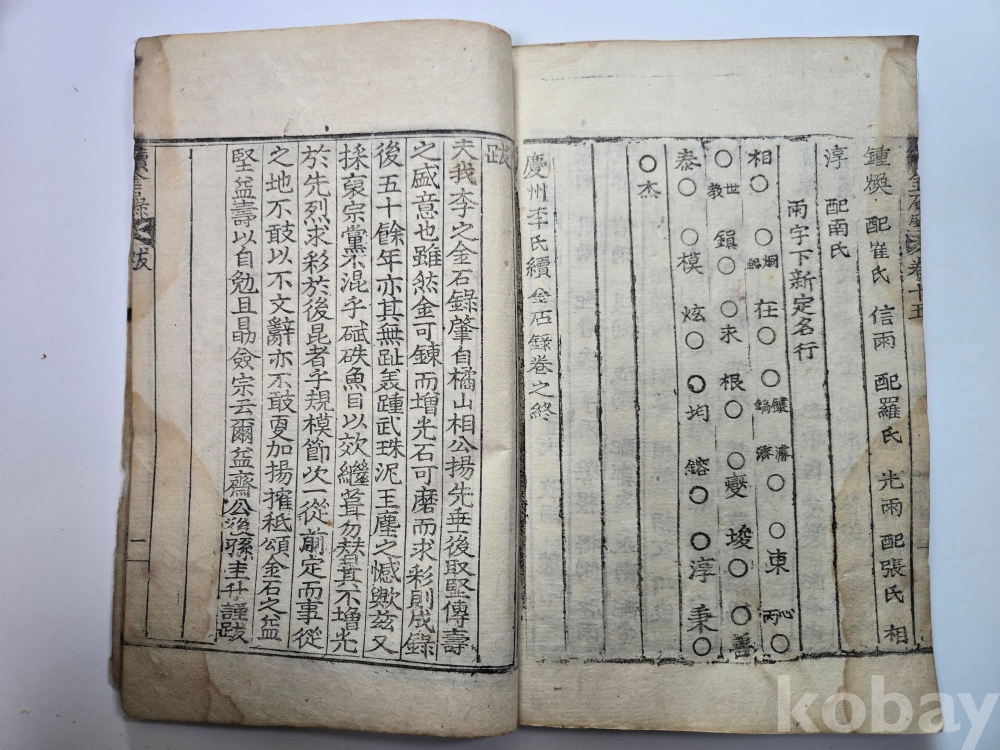 鍾煥 配崔氏 信雨 配羅氏 光雨 配張氏 相
淳 配南氏
兩字下新定名行
相○ ○炯 在○ ○鎬 濬○ ○東 心丙
○世教 鎭○ ○求 根○ ○燮 埈○ ○善
泰○ ○模 炫○ ○均 鎔○ ○淳 秉○
○杰
慶州李氏續金石錄卷之終
卷十五
跋
夫我李之金石錄肇自橘山相公揚先垂後取堅傳壽
之盛意也雖然金可鍊而增光石可磨而求彩則成錄
後五十餘年亦其無趾美踵武珠泥玉塵之憾歟玆又
採裒宗黨不混乎碔砆魚目以效繼葺勿替其不增光
於先烈求彩於後昆者乎規模節次一從前定而事從
之地不敢以不文辭亦不敢更加揚搉秪頌金石之益
堅益壽以自勉且勗僉宗云爾益齋公後孫圭升謹跋
跋
一
kobay